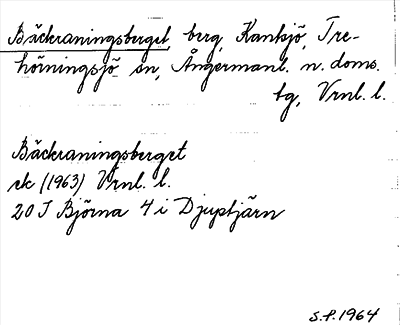 Bäckraningsberget, berg, Kanksjö, Tre-
hörningsjö sn, Ångermanl. n. doms.
tg, Vrnl. l.
Bäckraningsberget
ek (1963) Vrnl. l.
20 J Björna 4 i Djuptjärn
S.P. 1964